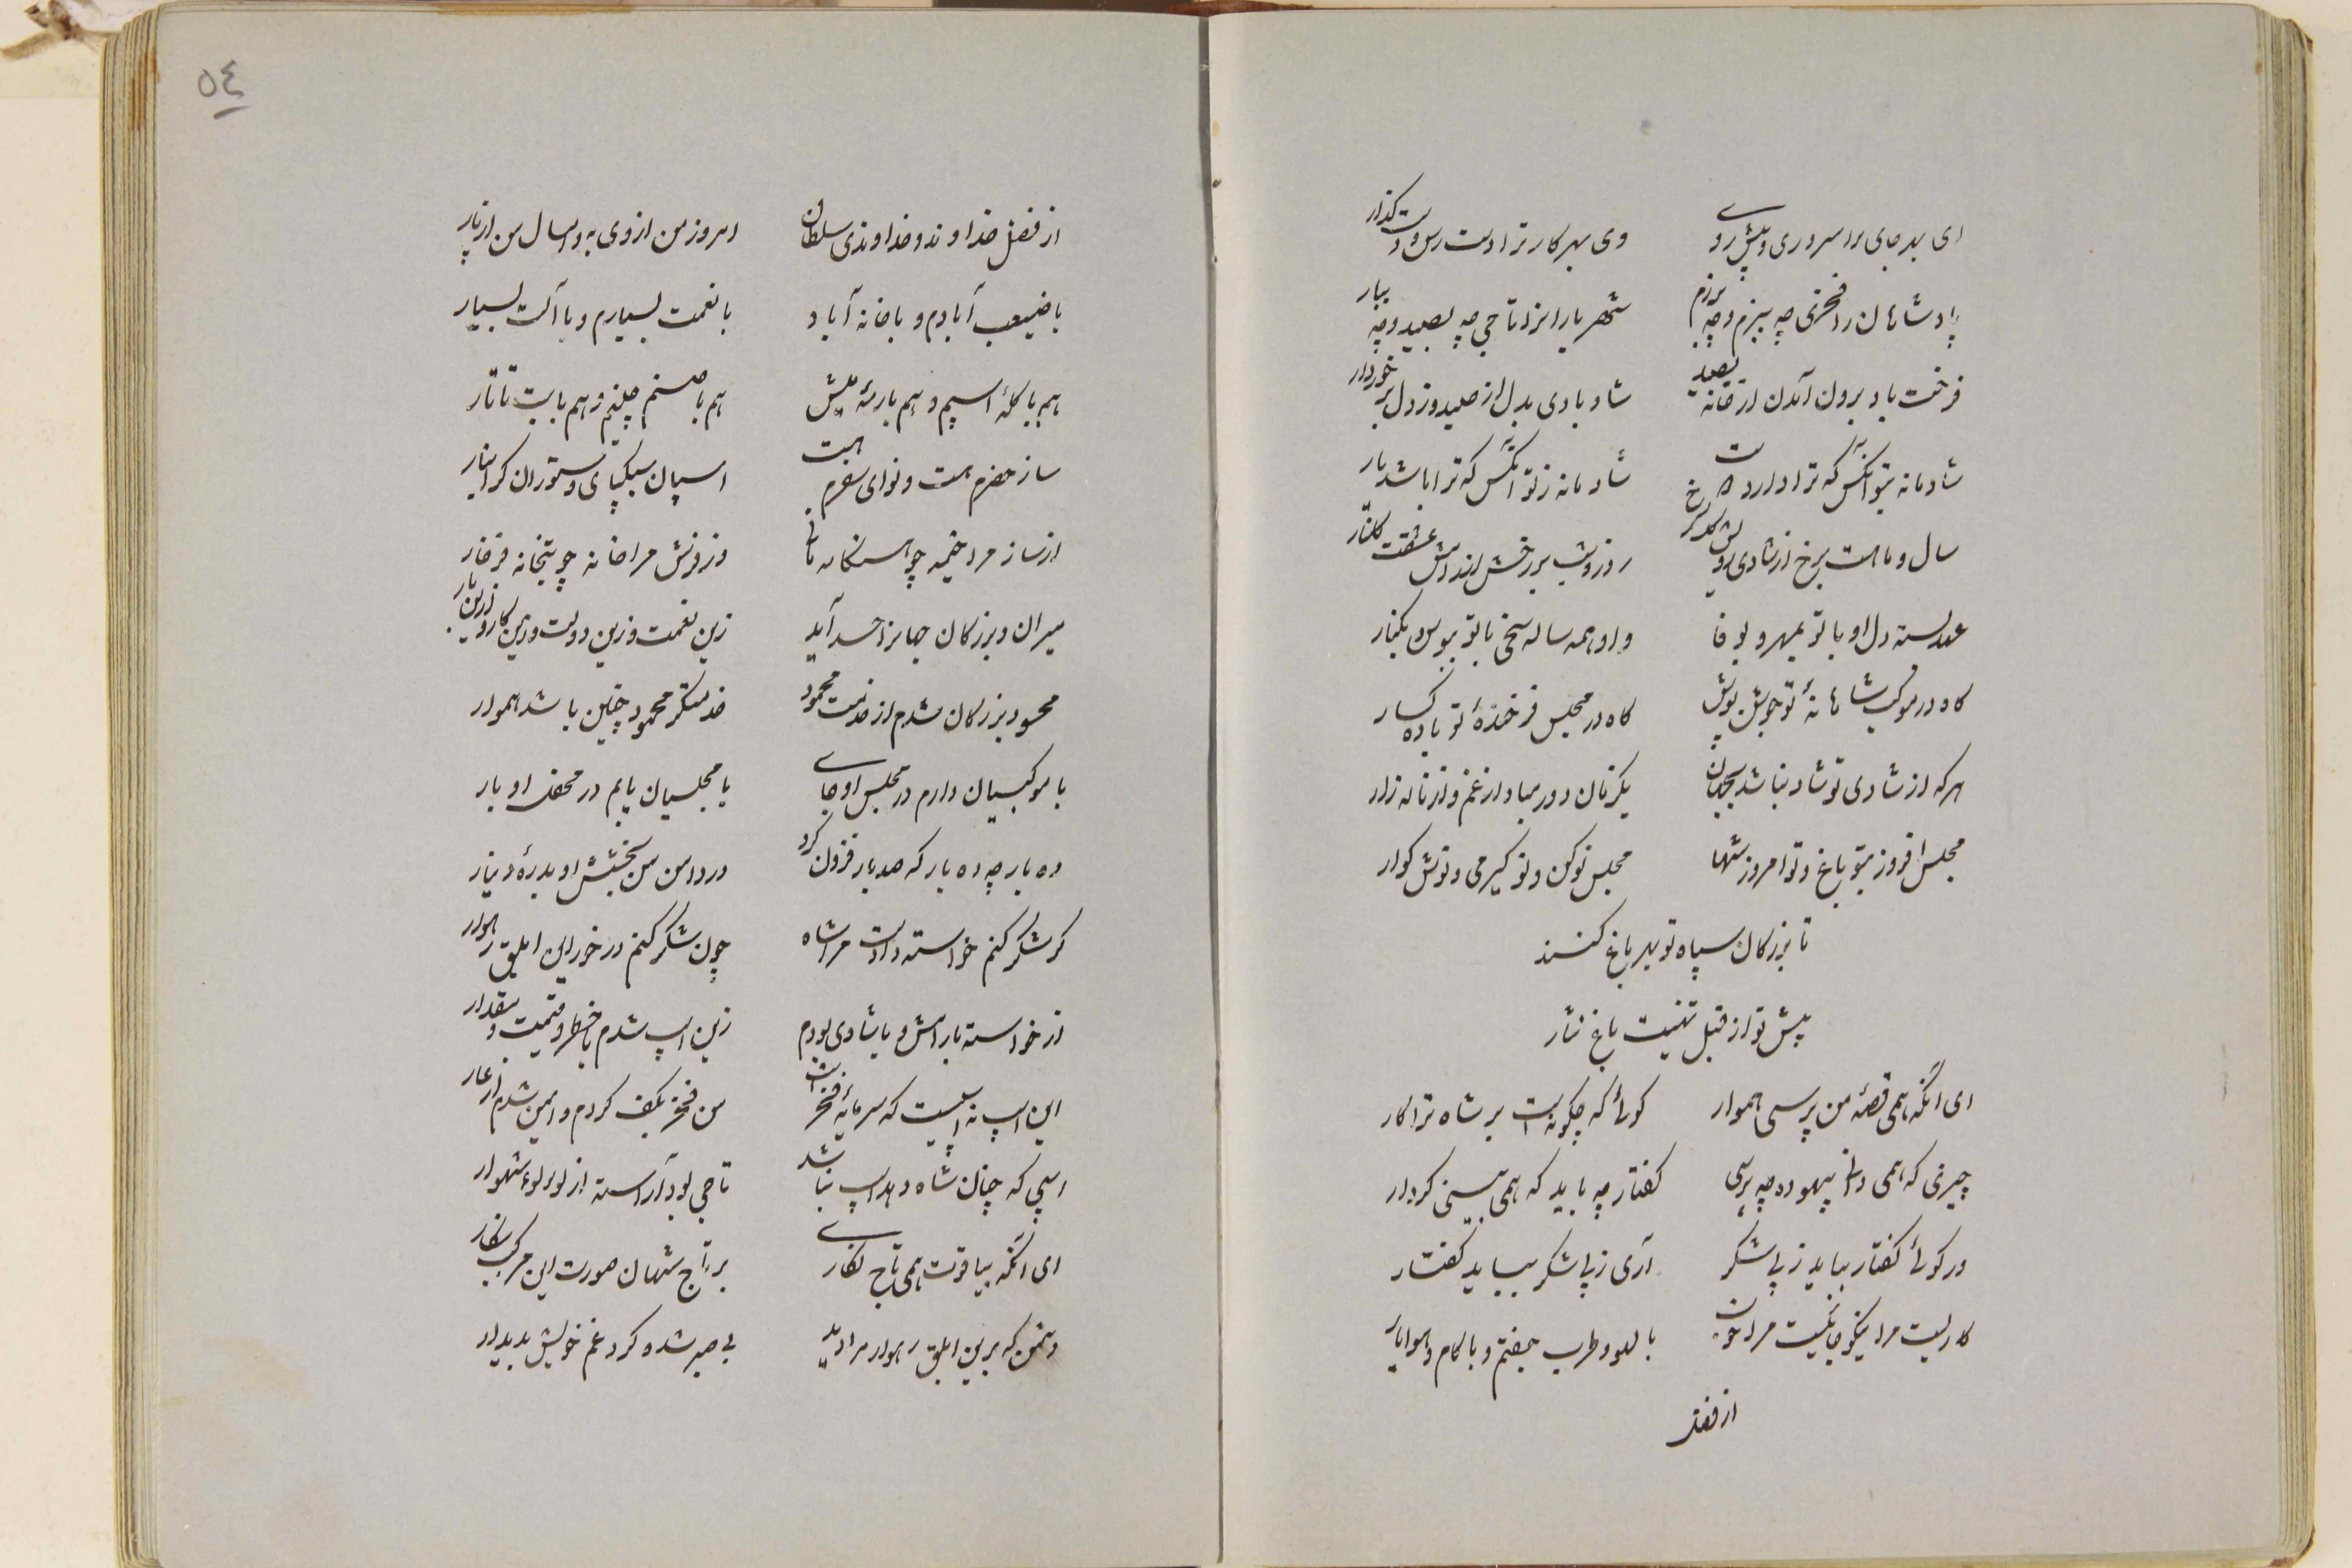 ای بهر جای ترا سروری و پیش روی وی بهر کار ترا دست رس و دست گذار
پادشاهان را فخری چه ببزم و چه برزم شهریارا نرا تاجی چه بصید و چه ببار
فرخت باد برون آمدن از خانه بصید شاد بادی بدل از صید وز دل برخوردار
شادمانه بتو آنکس که ترا دارد دوست شادمانه ز تو آنکس که ترا باشد یار
سال و ماهت برخ از شادی روی گل سرخ روز و شب بر رخش اندر عشقت گلنار
عهد بسته دل او با تو بمهر و بوفا واو همه ساله سخی با تو ببوس و بکنار
گاه در موکب شاهانهٔ تو جوشن پوش گاه در مجلس فرخندهٔ تو باده گسار
هر که از شادی تو شاد نباشد بجهان یکزمان دور مباد از غم و از نالهٔ زار
مجلس افروز بتو باغ و تو امروز شها مجلس نو کن و نو گیر می و نوش گوار
تا بزرگان سپاه تو بهر باغ کنند
پیش تو از قبل تهنیت باغ نثار
ای آنکه همی قصهٔ من پرسی هموار گوئی که چگونه است بر شاه ترا کار
چیزی که همی دانی بیهوده چه پرسی گفتار چه باید که همی بینی کردار
ور گوئی گفتار بباید ز پی شکر آری ز پی شکر بباید گفتار
کاریست مرا نیکو حالیست مرا خوب با لهو و طرب جفتم و با کام و هوا یار
از فضل
٥٤
از فضل خداوند و خداوندی سلطان امروز من از وی به و امسال من از پار
با ضیعت آبادم و با خانه آباد با نعمت بسیارم و با آلت بسیار
هم با گلهٔ اسپم و هم با رمهٔ میش هم با صنم چینم و هم با بت تاتار
ساز حضرم هست و نوای سفرم هست اسپان سبکپای و ستوران گرانبار
از ساز مرا خیمه چو کاشانه مانی وز فرش مرا خانه چو بتخانه فرخار
میران و بزرگان جهانرا حسد آید زین نعمت و زین دولت و زین کار و ازین بار
محسود بزرگان شدم از خدمت محمود خدمتگر محمود چنین باشد هموار
با موکبیان دارم در مجلس او جای با مجلسیان یابم در محفل او بار
ده بار چه ده بار که صد بار فزون کرد در دامن من بخشش او بدرهٔ دینار
گر شکر کنم خواسته دادست مرا شاه چون شکر کنم در خور این ابلق رهوار
از خواسته با رامش و با شادی بودم زین اسپ شدم با خطر و قیمت و مقدار
این اسپ نه اسپیست که سرمایهٔ فخر است من فخر بکف کردم و ایمن شدم از عار
اسپی که چنان شاه دهد اسپ نباشد تاجی بود آراسته از لؤلؤ شهوار
ای آنکه بیاقوت همی تاج نگاری بر تاج شهان صورت این مرکب بنگار
دشمن که برین ابلق رهوار مرا دید بی صبر شد و کرد غم خویش پدیدار